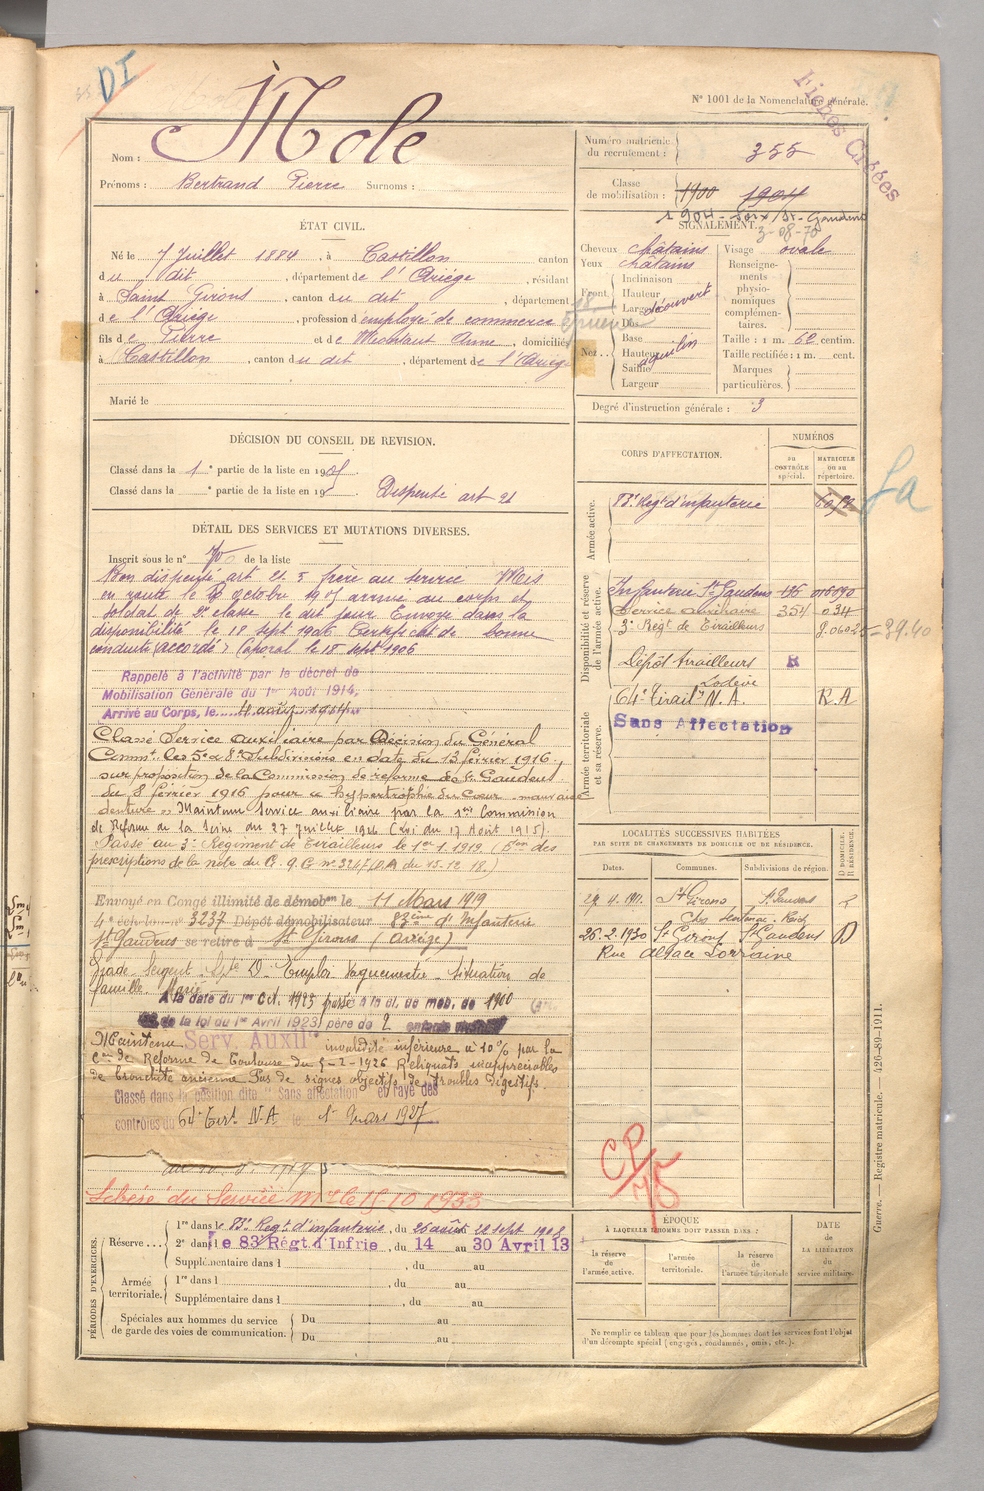 DI
N° 1001 de la Nomenclature générale.
Fiches Créées
Nom : Mole
Prénoms : Bertrand Pierre Surnoms :
Numéro matricule du recrutement : 355
Classe de mobilisation : 1900 1904
1904 - Soix/St-Gaudens
3-08-70
ÉTAT CIVIL.
Né le 7 Juillet 1884, à Castillon canton
du dit, département de l'Ariége, résidant
à Saint Girons, canton du dit, département
de l'Ariége, profession d'employé de commerce
fils de Pierre et de Montaut Anne, domiciliés
à Castillon, canton du dit, département de l'Ariége
Marié le
SIGNALEMENT.
Cheveux châtains
Yeux châtains
Front
Inclinaison
Hauteur
Largeur
découvert
Nez
Dos
Base
Hauteur
Saillie
Largeur
aquilin
Visage ovale
Renseignements physionomiques complémentaires.
Taille : 1 m. 60 centim.
Taille rectifiée : 1 m. cent.
Marques particulières.
Degré d'instruction générale : 3
DÉCISION DU CONSEIL DE REVISION.
Classé dans la 1e partie de la liste en 1905
Classé dans la e partie de la liste en 19 Dispensé art 21
DÉTAIL DES SERVICES ET MUTATIONS DIVERSES.
Inscrit sous le n° 70 de la liste
Bon dispensé art 21. 5 frère au service Mis
en route le octobre 1905 arrivé au corps et
soldat de 2e classe le dit jour Envoyé dans la
disponibilité le 18 sept 1906 Certificat de bonne
conduite accordé Caporal le 18 sept 1906
Rappelé à l'activité par le décret de
Mobilisation Générale du 1er Août 1914,
Arrivé au Corps, le 4 août 1914
Classé Service auxiliaire par Décision du Général
Commt les 5e & 8e Subdivisions en date du 13 février 1916,
sur proposition de la Commission de réforme de St Gaudens
du 8 février 1916 pour « hypertrophie du cœur - mauvaise
denture » Maintenu Service auxiliaire par la 1ère Commission
de Réforme de la Seine du 27 juillet 1916 (Loi du 17 Août 1915).
Passé au 3e Régiment de Tirailleurs le 1er 1. 1919 (bon des
prescriptions de la note du G. Q. G n° 3267/DA du 15.12.18.)
Envoyé en Congé illimité de démobon le 11 Mars 1919
4e échelon n° 3237 Dépôt démobilisateur 83ème d'Infanterie
St Gaudens se retire à St Girons (Ariége)
Grade Sergent Spté D. Emploi Vaguemestre Situation de
famille Marié
A la date du 1er Oct. 1923 passé à la cl. de mob. de 1900
de la loi du 1er Avril 1923) père de 2 enfants vivants
Maintenu Serv. Auxil invalidité inférieure à 10% par la
Con de Réforme de Toulouse du 5-2-1926 Reliquats inappréciables
de bronchite ancienne Pas de signes objectifs de troubles digestifs.
Classé dans la position dite "Sans affectation" et rayé des
contrôles du 64e Tirt N.A le 1er Mars 1927
Libéré du Service Mre le 15-10 1933
CORPS D'AFFECTATION.
NUMÉROS
au contrôle spécial.
matricule ou au répertoire.
Armée active.
83e Regt d'infanterie
La
Disponibilité et réserve de l'armée active.
Infanterie St Gaudens 136 016090
Service auxiliaire 354 034
3e Régt de Tirailleurs
Dépôt tirailleurs R
Lodève
Armée territoriale et sa réserve.
64e Tirailrs N. A. R.A
Sans Affectation
LOCALITÉS SUCCESSIVES HABITÉES
PAR SUITE DE CHANGEMENTS DE DOMICILE OU DE RÉSIDENCE.
Dates. Communes. Subdivisions de région.
D DOMICILE. R RÉSIDENCE.
27. 4. 1911. St Girons St Gaudens
26. 2. 1930 St Girons St Gaudens D
Rue Alsace Lorraine
CP/75
PÉRIODES D'EXERCICES.
Réserve...
1re dans le 83e Regt d'infanterie, du 26 août au 22 sept 1908
2e dans le 83e Régt d'Infrie, du 14 au 30 Avril 13
Supplémentaire dans l , du au
Armée territoriale.
1re dans l , du au
Supplémentaire dans l , du au
Spéciales aux hommes du service de garde des voies de communication.
Du au
Du au
ÉPOQUE
À LAQUELLE L'HOMME DOIT PASSER DANS :
la réserve de l'armée active.
l'armée territoriale.
la réserve de l'armée territoriale
DATE de LA LIBÉRATION du service militaire.
Ne remplir ce tableau que pour les hommes dont les services font l'objet
d'un décompte spécial (engagés, condamnés, omis, etc.).
Guerre. — Registre matricule. — 426-89-1911.